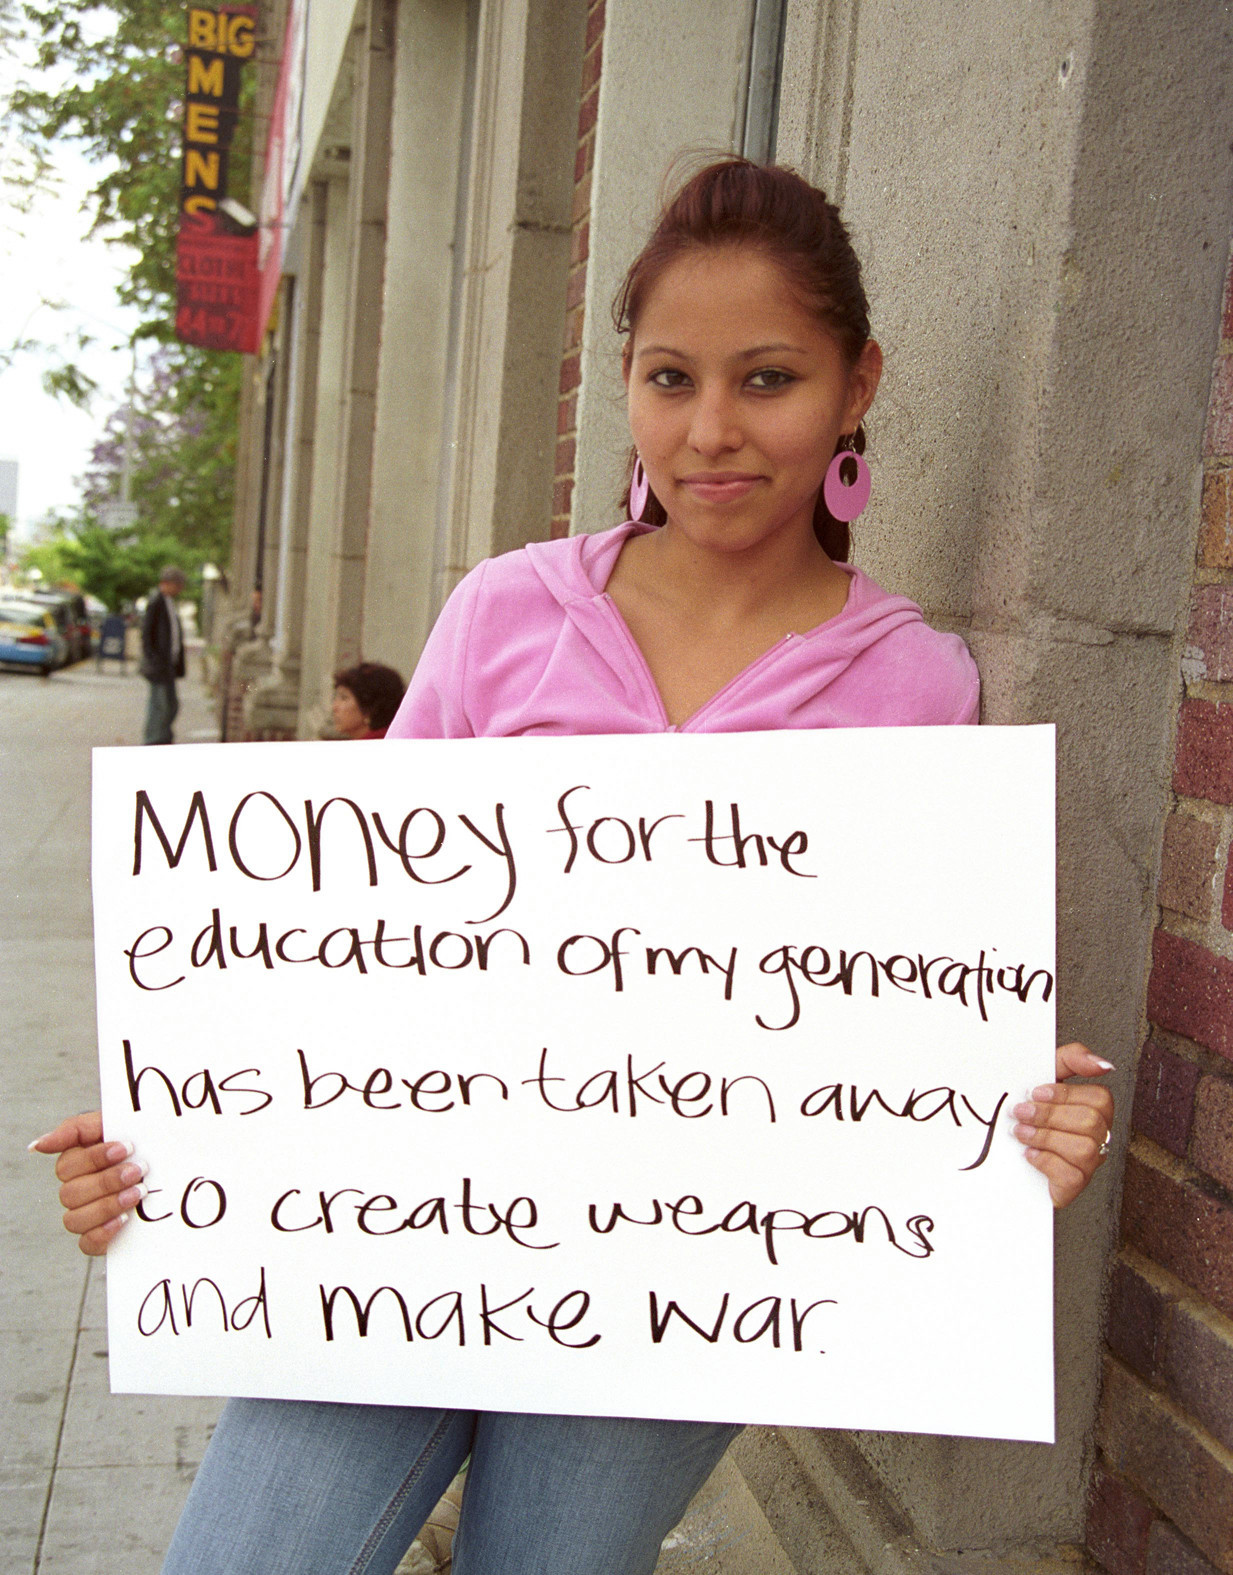 BIG
MENS
CLOTHE
MONey for the
education of my generation
has been taken away
to create weapons
and make war.